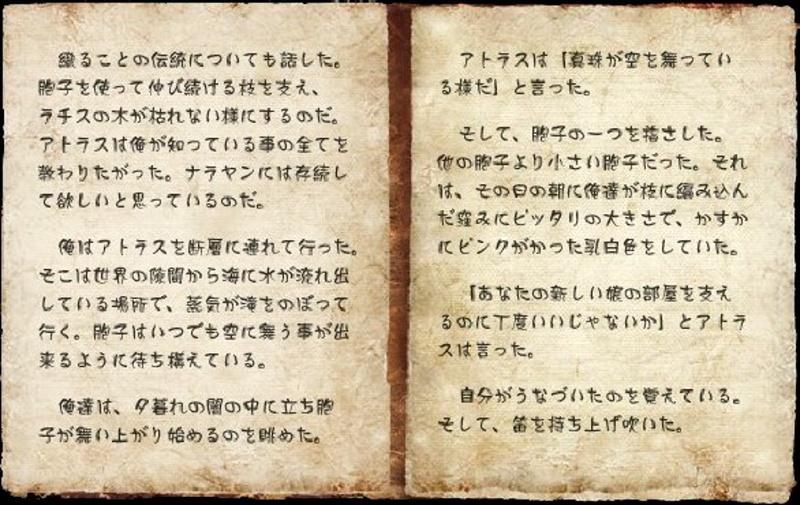 織ることの伝統についても話した。
胞子を使って伸び続ける枝を支え、
ラチスの木が枯れない様にするのだ。
アトラスは俺が知っている事の全てを
教わりたがった。ナラヤンには存続し
て欲しいと思っているのだ。
俺はアトラスを断層に連れて行った。
そこは世界の隙間から海に水が流れ出
している場所で、蒸気が滝をのぼって
行く。胞子はいつでも空に舞う事が出
来るように待ち構えている。
俺達は、夕暮れの闇の中に立ち胞
子が舞い上がり始めるのを眺めた。
アトラスは「真珠が空を舞ってい
る様だ」と言った。
そして、胞子の一つを指さした。
他の胞子より小さい胞子だった。それ
は、その日の朝に俺達が枝に編み込ん
だ窪みにピッタリの大きさで、かすか
にピンクがかった乳白色をしていた。
「あなたの新しい娘の部屋を支え
るのに丁度いいじゃないか」とアトラ
スは言った。
自分がうなづいたのを覚えている。
そして、笛を持ち上げ吹いた。